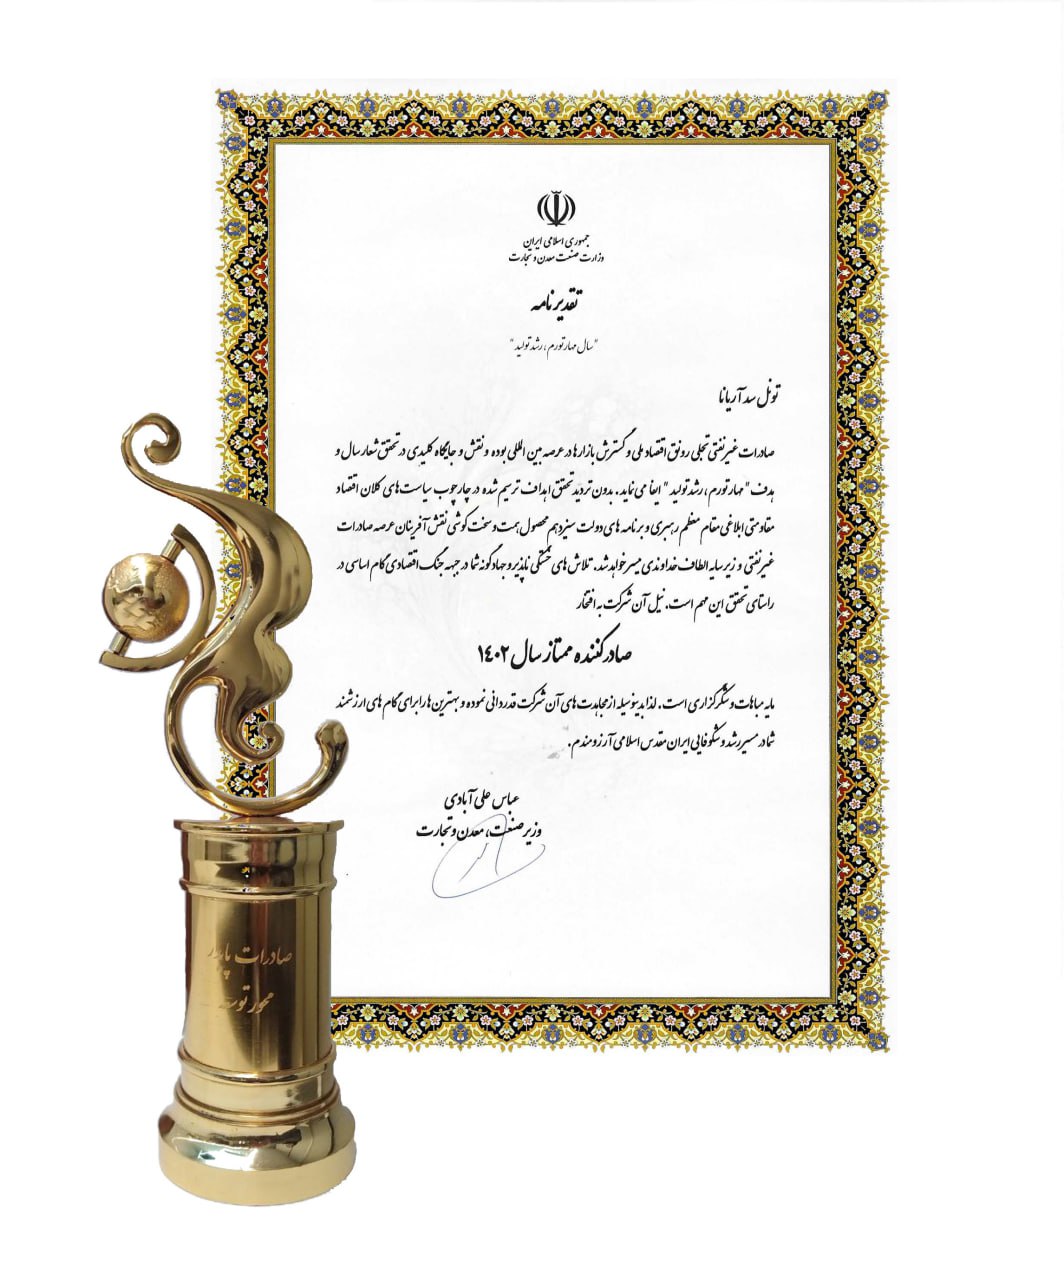 جمهوری اسلامی ایران
وزارت صنعت معدن و تجارت
تقدیرنامه
"سال مهار تورم، رشد تولید"
تونل سد آریانا
صادرات غیرنفتی تجلی رونق اقتصاد ملی و گسترش بازارها در عرصه بین المللی بوده و نقش و جایگاه کلیدی در تحقق شعار سال و
هدف "مهار تورم، رشد تولید" ایفا می نماید. بدون تردید تحقق اهداف ترسیم شده در چارچوب سیاست های کلان اقتصاد
مقاومتی ابلاغی مقام معظم رهبری و برنامه های دولت سیزدهم محصول همت و سخت کوشی نقش آفرینان عرصه صادرات
غیرنفتی و زیر سایه الطاف خداوندی میسر خواهد شد. تلاش های خستگی ناپذیر و جهادگونه شما در جبهه جنگ اقتصادی گام اساسی در
راستای تحقق این مهم است. نیل آن شرکت به افتخار
صادرکننده ممتاز سال ۱٤۰۲
مایه مباهات و شکرگزاری است. لذا بدینوسیله از مجاهدت های آن شرکت قدردانی نموده و بهترین ها را برای گام های ارزشمند
شما در مسیر رشد و شکوفایی ایران مقدس اسلامی آرزومندم.
عباس علی آبادی
وزیر صنعت، معدن و تجارت
صادرات پایدار
محور توسعه